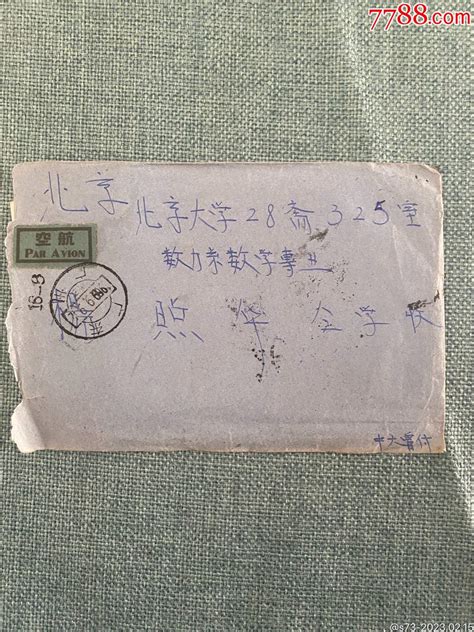 7788.com
北京
北京大学28斋325室
空航
PAR AVION
数力系数学専业
照华仝学收
中大寄付
@s73-2023.02.15